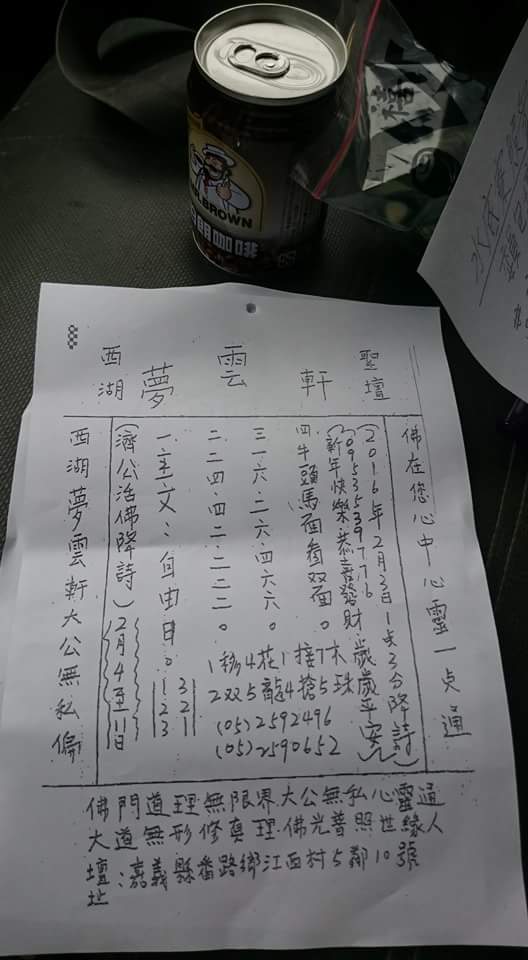 MR.BROWN
朗咖啡
禧
西湖 夢 雲 軒 聖壇
佛在您心中心靈一点通
(2016年2月3日1点3分降詩)
(0953539776
新年快樂:恭喜發財.歲歲平安)
四.牛頭馬面看双面。接7木
三一六.二六.四六六。
二.二四.四二.二二二。
一.主文:自由目。
(濟公活佛降詩)(2月4至11日)
(05)2592496
(05)2590652
西湖夢雲軒大公無私偏
佛門道理無限界大公無私心靈通
大道無形修真理.佛光普照世緣人
壇址:嘉義縣番路鄉江西村5鄰10號